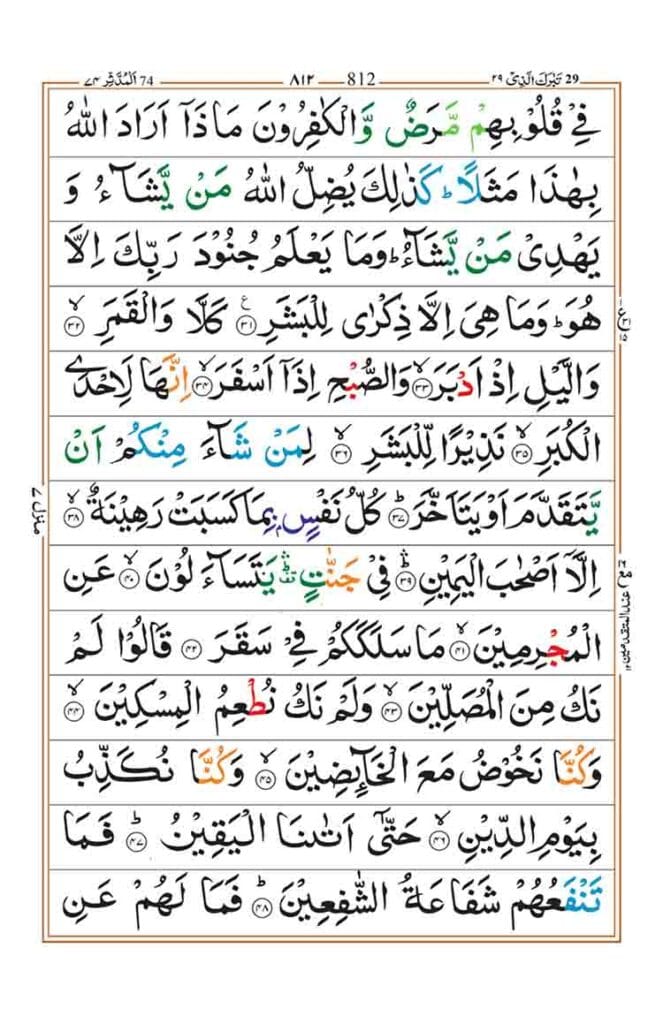 29 تَبٰرَكَ الَّذِىْ ٢٩
812 ٨١٢
74 اَلْمُدَّثِّر ٧٤
فِىْ قُلُوْبِهِمْ مَّرَضٌ وَّالْكٰفِرُوْنَ مَاذَاۤ اَرَادَ اللّٰهُ
بِهٰذَا مَثَلًاؕ كَذٰلِكَ يُضِلُّ اللّٰهُ مَنْ يَّشَآءُ وَ
يَهْدِىْ مَنْ يَّشَآءُؕ وَمَا يَعْلَمُ جُنُوْدَ رَبِّكَ اِلَّا
هُوَؕ وَمَا هِىَ اِلَّا ذِكْرٰى لِلْبَشَرِ ۧ ﴿٣١﴾ كَلَّا وَالْقَمَرِ ۙ ﴿٣٢﴾
وَالَّيْلِ اِذْ اَدْبَرَ ۙ ﴿٣٣﴾ وَالصُّبْحِ اِذَاۤ اَسْفَرَ ۙ ﴿٣٤﴾ اِنَّهَا لَاِحْدَى
الْكُبَرِ ۙ ﴿٣٥﴾ نَذِيْرًا لِّلْبَشَرِ ۙ ﴿٣٦﴾ لِمَنْ شَآءَ مِنْكُمْ اَنْ
يَّتَقَدَّمَ اَوْ يَتَاَخَّرَ ؕ ﴿٣٧﴾ كُلُّ نَفْسٍۢ بِمَا كَسَبَتْ رَهِيْنَةٌ ۙ ﴿٣٨﴾
اِلَّاۤ اَصْحٰبَ الْيَمِيْنِ ۛؕ ﴿٣٩﴾ فِىْ جَنّٰتٍ ۛ يَتَسَآءَلُوْنَ ۙ ﴿٤٠﴾ عَنِ
الْمُجْرِمِيْنَ ۙ ﴿٤١﴾ مَا سَلَكَكُمْ فِىْ سَقَرَ ﴿٤٢﴾ قَالُوْا لَمْ
نَكُ مِنَ الْمُصَلِّيْنَ ۙ ﴿٤٣﴾ وَلَمْ نَكُ نُطْعِمُ الْمِسْكِيْنَ ۙ ﴿٤٤﴾
وَكُنَّا نَخُوْضُ مَعَ الْخَآئِضِيْنَ ۙ ﴿٤٥﴾ وَكُنَّا نُكَذِّبُ
بِيَوْمِ الدِّيْنِ ۙ ﴿٤٦﴾ حَتّٰٓى اَتٰٮنَا الْيَقِيْنُ ؕ ﴿٤٧﴾ فَمَا
تَنْفَعُهُمْ شَفَاعَةُ الشّٰفِعِيْنَ ؕ ﴿٤٨﴾ فَمَا لَهُمْ عَنِ
منزل ٧